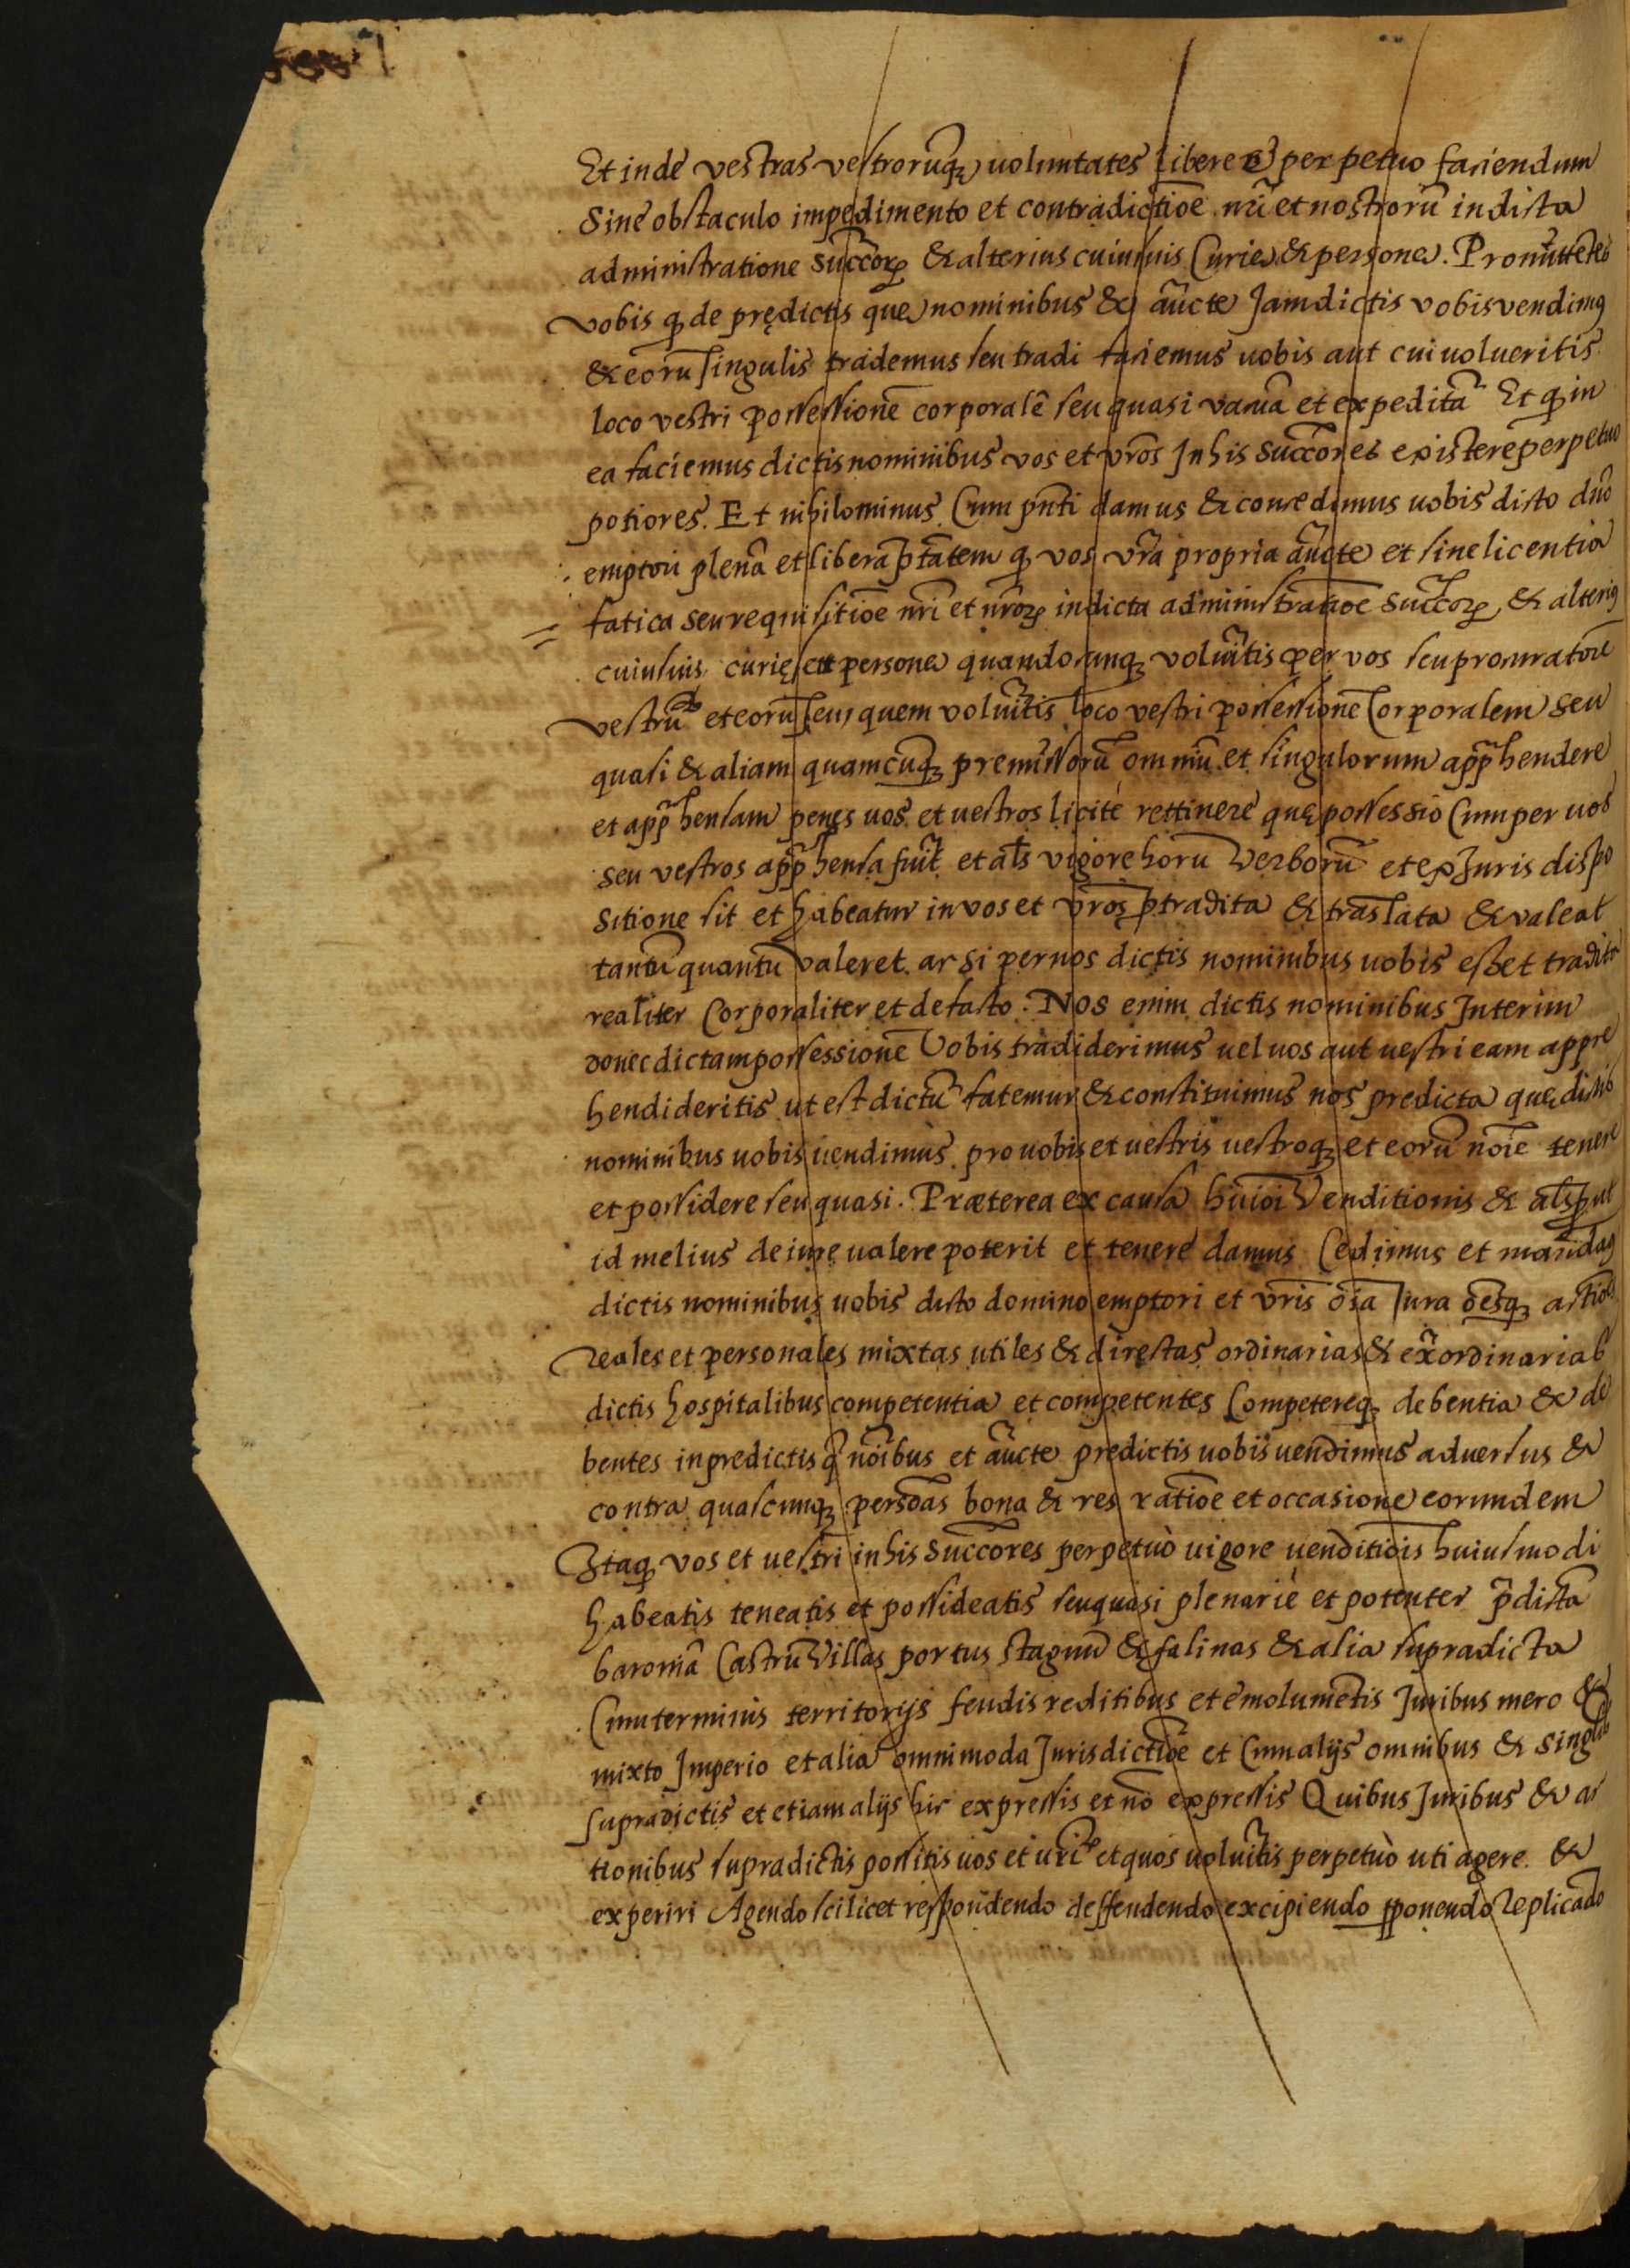 Et inde vestras vestrorūq; uoluntates libere & perpetuo faciendum
Sine obstaculo impedimento et contradictiōe nr̄i et nostrorū in dicta
administratione succōꝝ & alterius cuiusuis Curie & persone. Promittētes
vobis q̄ de prędictis que nominibus & āucte Jamdictis vobis vendimꝰ
& eorū singulis trademus seu tradi faciemus uobis aut cui uolueritis
loco vestri possessionē corporalē seu quasi vacuā et expeditā Et q̄ in
ea faciemus dictis nominibus vos et vr̄os In his succōres existere perpetuo
potiores. Et nihilominus Cum pn̄ti damus & concedimus uobis dicto dn̄o
emptori plenā et liberā pt̄atem q̄ vos vr̄a propria āucte et sine licentia
fatica seu requisitiōe nr̄i et nr̄oꝝ in dicta administratiōe succōꝝ & alteriꝰ
cuiusuis curię seu persone quandocunq; voluītis per vos seu procuratorē
vestrū et eorū seu quem voluītis loco vestri possessionē Corporalem seu
quasi & aliam quamcūq; premissorū omniū et singulorum app̄hendere
et app̄hensam penes uos et uestros licitè rettinere quę possessio Cum per uos
seu vestros app̄hensa fuīt et al̄s vigore horū Verborū et ex Juris dispo
sitione sit et habeatur in vos et vr̄os ꝓ tradita & traslata & valeat
tantū quantū valeret ac si per nos dictis nominibus uobis esset tradita
realiter Corporaliter et de facto. Nos enim dictis nominibus Interim
donec dictam possessionē Vobis tradiderimus uel uos aut uestri eam appre
hendideritis ut est dictū fatemur & constituimus nos predicta que dictis
nominibus uobis uendimus pro uobis et uestris uestroq; et eorū noīe tenere
et possidere seu quasi. Præterea ex causa huiōi Venditionis & al̄s ꝓut
id melius de iure ualere poterit et tenere damus Cedimus et mandaꝰ
dictis nominibus uobis dicto domino emptori et vr̄is oīa Jura oēsq; actiōes
reales et personales mixtas utiles & directas ordinarias & ex̄ordinarias
dictis hospitalibus competentia et competentes Competereq; debentia & de
bentes in predictis q̄ noībus et āucte predictis uobis uendimus aduersus &
contra quascunq; persōas bona & res ratiōe et occasione eorumdem
Itaq; vos et uestri in his succōres perpetuò uigore uenditiōis huiusmodi
habeatis teneatis et possideatis seu quasi plenariè et potenter p̄dictā
baroniā Castrū Villas portus stagnū & salinas & alia supradicta
Cum terminis territorijs feudis reditibus et emolumētis Juribus mero &
mixto Imperio et alia omnimoda Jurisdictiōe et Cum alijs omnibus & singulis
supradictis et etiam alijs hic expressis et nō expressis Quibus Juribus & ac
tionibus supradictis possitis uos et ur̄i et quos uoluītis perpetuò uti agere &
experiri Agendo scilicet respondendo deffendendo excipiendo ꝓponendo Replicādo